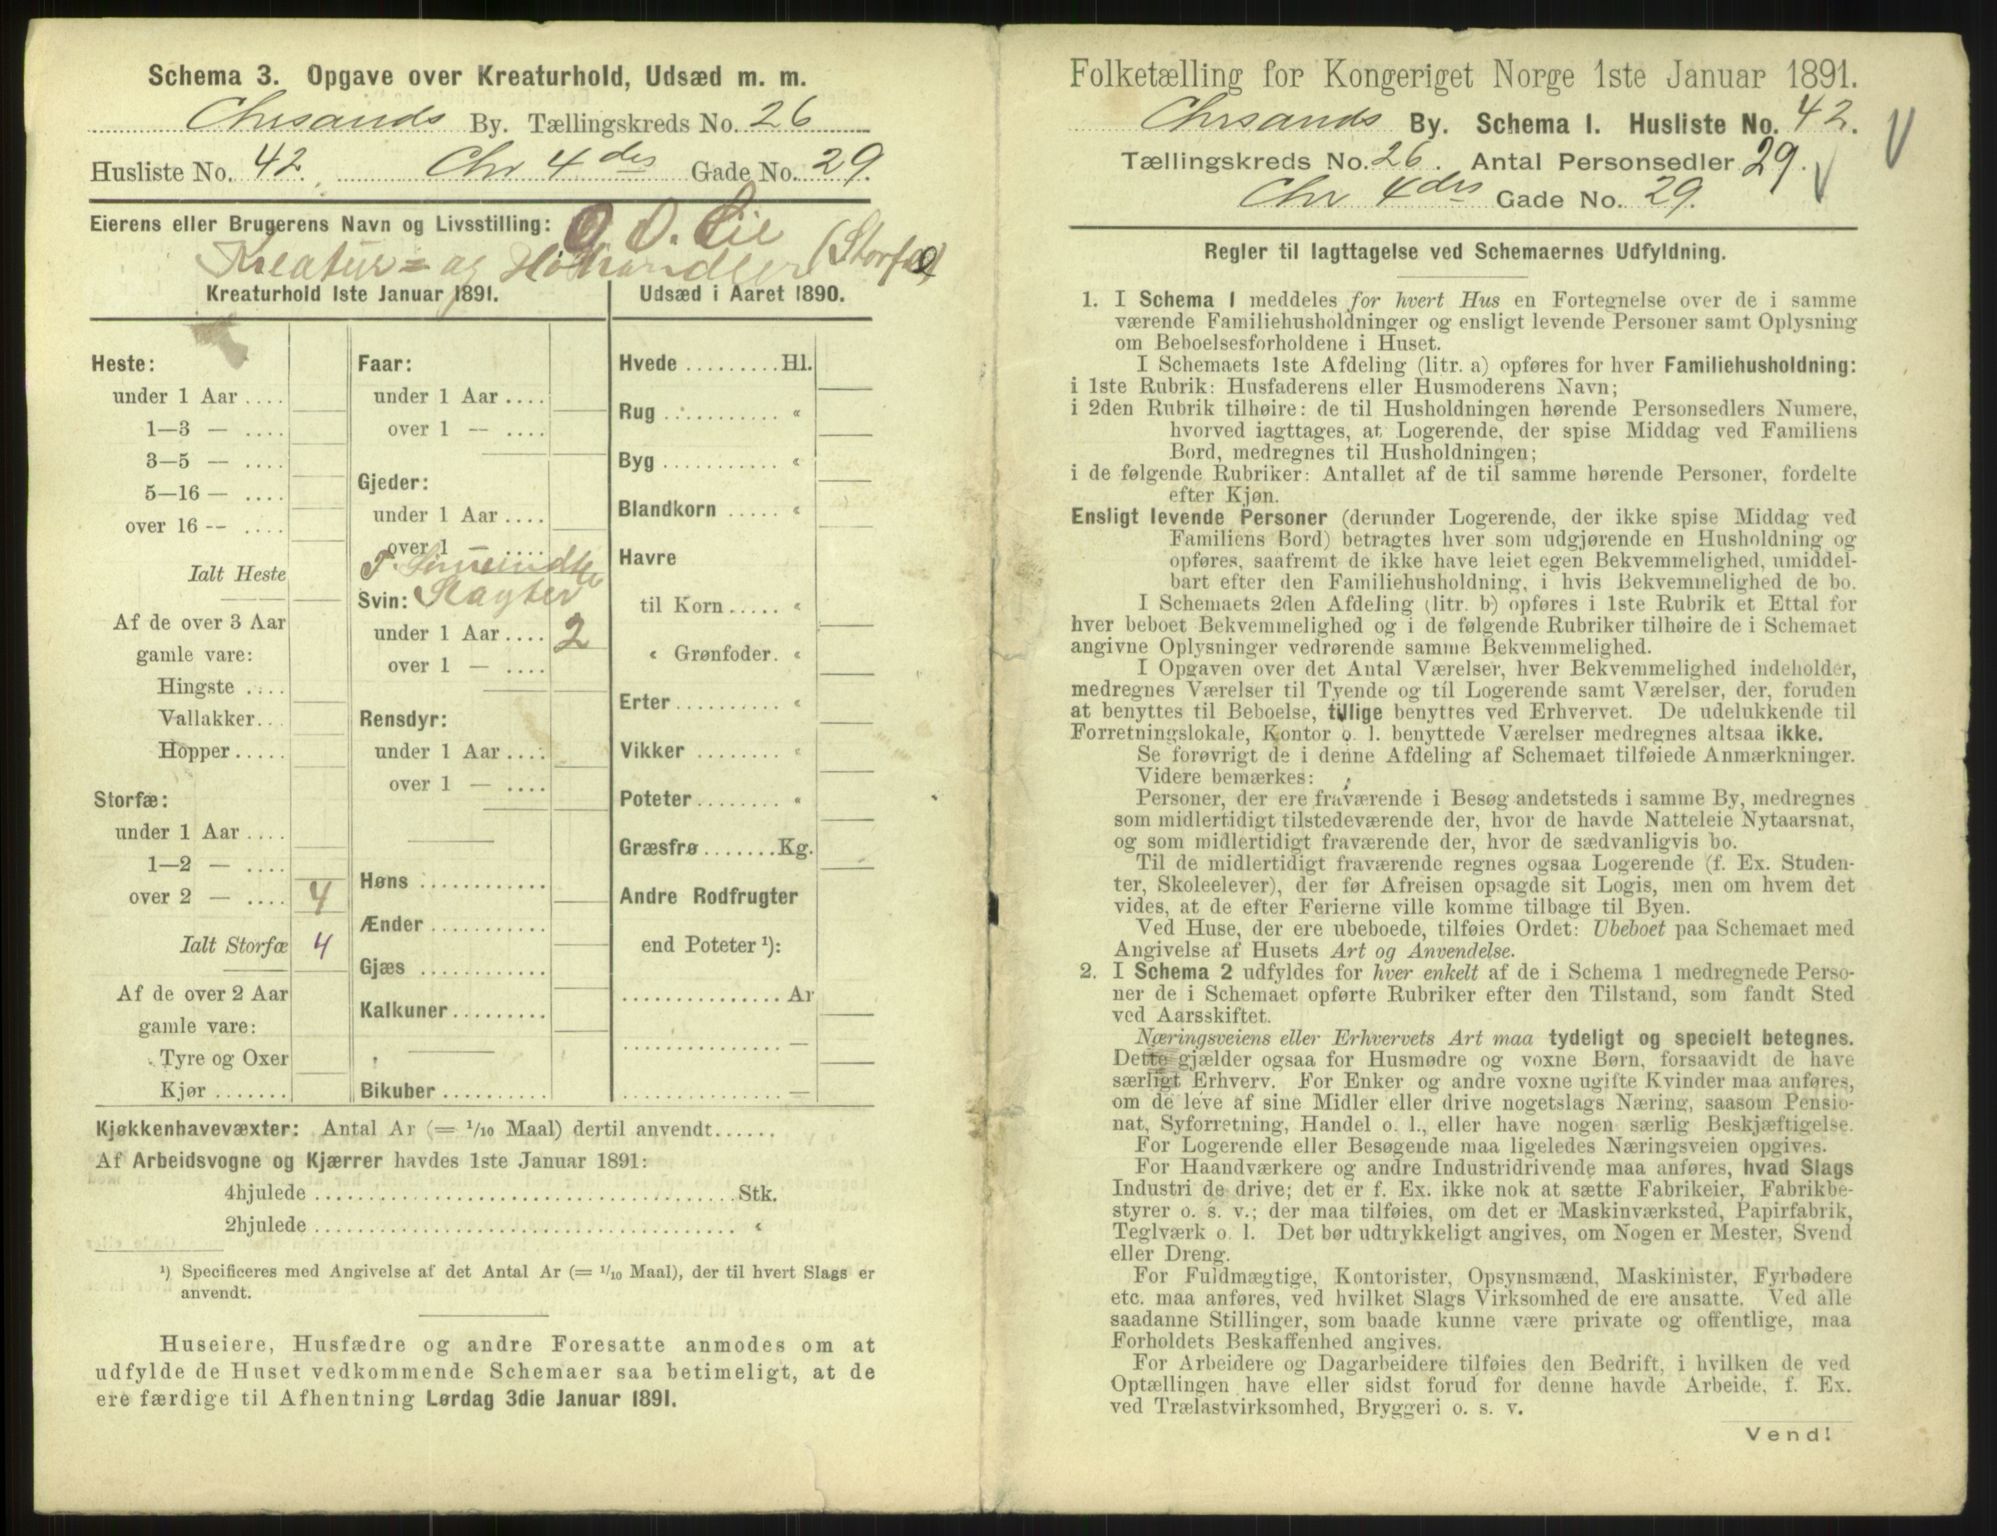 Schema 3. Opgave over Kreaturhold, Udsæd m. m.
Chrsands By. Tællingskreds No. 26
Husliste No. 42. Chr 4 des Gade No. 29.
Eierens eller Brugerens Navn og Livsstilling: O. O. Eie
Kreatur= og Høhandler (Storfæ)
Kreaturhold 1ste Januar 1891.
Heste:
under 1 Aar ....
1—3 — ....
3—5 — ....
5—16 — ....
over 16 -- ....
Ialt Heste
Af de over 3 Aar
gamle vare:
Hingste ....
Vallakker...
Hopper.....
Storfæ:
under 1 Aar ....
1—2 — ....
over 2 — .... 4
Ialt Storfæ 4
Af de over 2 Aar
gamle vare:
Tyre og Oxer
Kjør .......
Faar:
under 1 Aar ....
over 1 — ....
Gjeder:
under 1 Aar ....
over 1 ....
Svin: Slagter
under 1 Aar .... 2
over 1 — ....
Rensdyr:
under 1 Aar ....
over 1 — ....
Høns ............
Ænder ...........
Gjæs ............
Kalkuner.........
Bikuber ..........
Udsæd i Aaret 1890.
Hvede .........Hl.
Rug .......... «
Byg ........... «
Blandkorn ..... «
Havre
til Korn..... «
« Grønfoder. «
Erter......... «
Vikker «
Poteter........ «
Græsfrø.......Kg.
Andre Rodfrugter
end Poteter ¹):
...............Ar
............... —
............... —
Kjøkkenhavevæxter: Antal Ar (= 1/10 Maal) dertil anvendt......
Af Arbeidsvogne og Kjærrer havdes 1ste Januar 1891:
4hjulede .......................................Stk.
2hjulede ....................................... «
¹) Specificeres med Angivelse af det Antal Ar (= 1/10 Maal), der til hvert Slags er
anvendt.
Huseiere, Husfædre og andre Foresatte anmodes om at
udfylde de Huset vedkommende Schemaer saa betimeligt, at de
ere færdige til Afhentning Lørdag 3die Januar 1891.
Folketælling for Kongeriget Norge 1ste Januar 1891.
Chrsands By. Schema 1. Husliste No. 42.
Tællingskreds No. 26. Antal Personsedler 29.
Chr 4 des Gade No. 29.
Regler til Iagttagelse ved Schemaernes Udfyldning.
1. I Schema 1 meddeles for hvert Hus en Fortegnelse over de i samme
værende Familiehusholdninger og ensligt levende Personer samt Oplysning
om Beboelsesforholdene i Huset.
I Schemaets 1ste Afdeling (litr. a) opføres for hver Familiehusholdning:
i 1ste Rubrik: Husfaderens eller Husmoderens Navn;
i 2den Rubrik tilhøire: de til Husholdningen hørende Personsedlers Numere,
hvorved iagttages, at Logerende, der spise Middag ved Familiens
Bord, medregnes til Husholdningen;
i de følgende Rubriker: Antallet af de til samme hørende Personer, fordelte
efter Kjøn.
Ensligt levende Personer (derunder Logerende, der ikke spise Middag ved
Familiens Bord) betragtes hver som udgjørende en Husholdning og
opføres, saafremt de ikke have leiet egen Bekvemmelighed, umiddel-
bart efter den Familiehusholdning, i hvis Bekvemmelighed de bo.
I Schemaets 2den Afdeling (litr. b) opføres i 1ste Rubrik et Ettal for
hver beboet Bekvemmelighed og i de følgende Rubriker tilhøire de i Schemaet
angivne Oplysninger vedrørende samme Bekvemmelighed.
I Opgaven over det Antal Værelser, hver Bekvemmelighed indeholder,
medregnes Værelser til Tyende og til Logerende samt Værelser, der, foruden
at benyttes til Beboelse, tillige benyttes ved Erhvervet. De udelukkende til
Forretningslokale, Kontor o. l. benyttede Værelser medregnes altsaa ikke.
Se forøvrigt de i denne Afdeling af Schemaet tilføiede Anmærkninger.
Videre bemærkes:
Personer, der ere fraværende i Besøg andetsteds i samme By, medregnes
som midlertidigt tilstedeværende der, hvor de havde Natteleie Nytaarsnat,
og som midlertidigt fraværende der, hvor de sædvanligvis bo.
Til de midlertidigt fraværende regnes ogsaa Logerende (f. Ex. Studen-
ter, Skoleelever), der før Afreisen opsagde sit Logis, men om hvem det
vides, at de efter Ferierne ville komme tilbage til Byen.
Ved Huse, der ere ubeboede, tilføies Ordet: Ubeboet paa Schemaet med
Angivelse af Husets Art og Anvendelse.
2. I Schema 2 udfyldes for hver enkelt af de i Schema 1 medregnede Perso-
ner de i Schemaet opførte Rubriker efter den Tilstand, som fandt Sted
ved Aarsskiftet.
Næringsveiens eller Erhvervets Art maa tydeligt og specielt betegnes.
Dette gjælder ogsaa for Husmødre og voxne Børn, forsaavidt de have
særligt Erhverv. For Enker og andre voxne ugifte Kvinder maa anføres,
om de leve af sine Midler eller drive nogetslags Næring, saasom Pensio-
nat, Syforretning, Handel o. l., eller have nogen særlig Beskjæftigelse.
For Logerende eller Besøgende maa ligeledes Næringsveien opgives.
For Haandværkere og andre Industridrivende maa anføres, hvad Slags
Industri de drive; det er f. Ex. ikke nok at sætte Fabrikeier, Fabrikbe-
styrer o. s. v.; der maa tilføies, om det er Maskinværksted, Papirfabrik,
Teglværk o. l. Det bør udtrykkeligt angives, om Nogen er Mester, Svend
eller Dreng.
For Fuldmægtige, Kontorister, Opsynsmænd, Maskinister, Fyrbødere
etc. maa anføres, ved hvilket Slags Virksomhed de ere ansatte. Ved alle
saadanne Stillinger, som baade kunne være private og offentlige, maa
Forholdets Beskaffenhed angives.
For Arbeidere og Dagarbeidere tilføies den Bedrift, i hvilken de ved
Optællingen have eller sidst forud for denne havde Arbeide, f. Ex.
ved Trælastvirksomhed, Bryggeri o. s. v.
Vend!